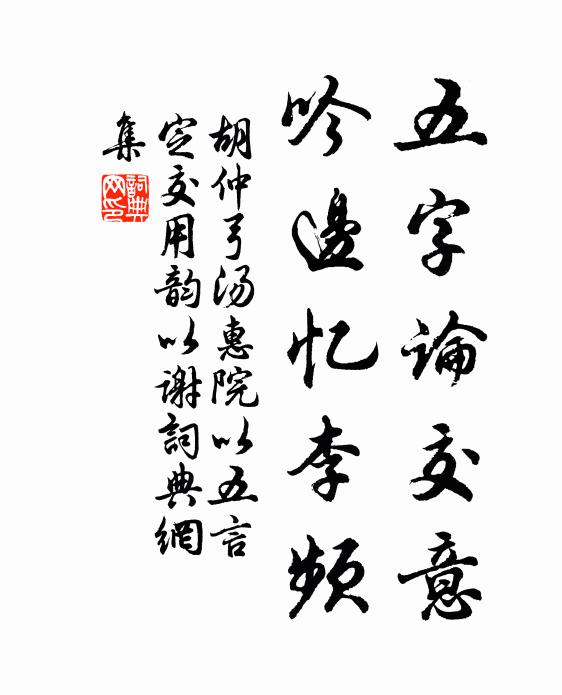 五字論交意
吟邊忆李频
胡仲弓汤惠院以五言
定交用韵以谢詞典網
集
詞典
网印